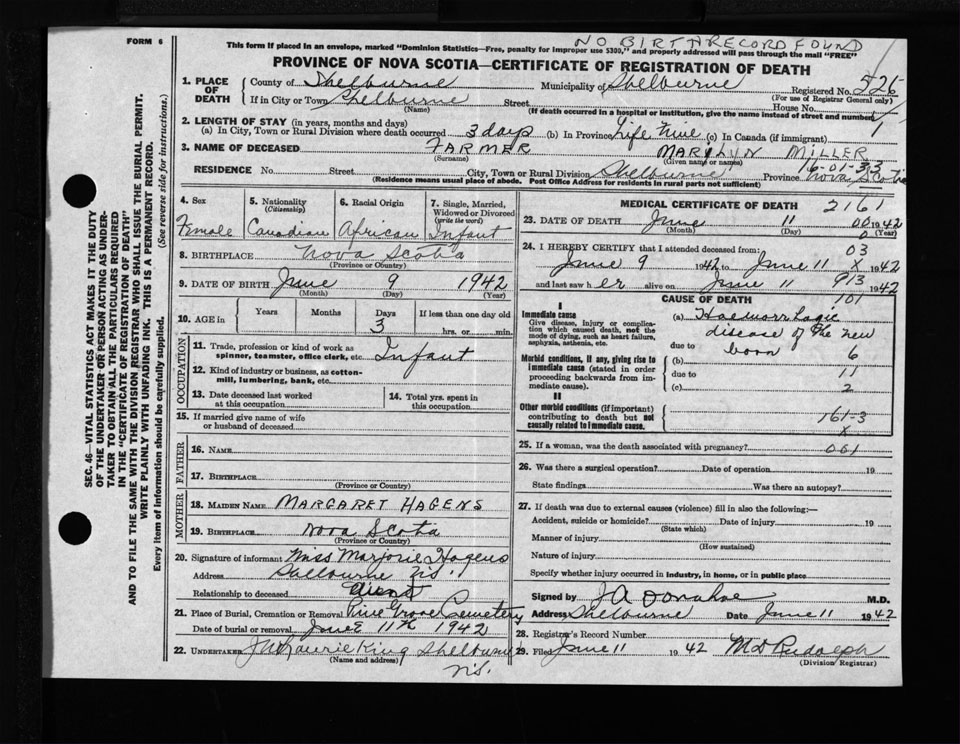 FORM 6
NO BIRTH RECORD FOUND
This form if placed in an envelope, marked "Dominion Statistics—Free, penalty for improper use $300," and properly addressed will pass through the mail "FREE"
PROVINCE OF NOVA SCOTIA—CERTIFICATE OF REGISTRATION OF DEATH
1. PLACE OF DEATH County of Shelburne Municipality of Shelburne Registered No. 525
(For use of Registrar General only)
If in City or Town Shelburne Street House No.
(Name) (If death occurred in a hospital or institution, give the name instead of street and number)
1
2. LENGTH OF STAY (in years, months and days)
(a) In City, Town or Rural Division where death occurred 3 days (b) In Province Life Time (c) In Canada (if immigrant)
3. NAME OF DECEASED FARMER MARILYN MILLER
(Surname) (Given name or names) 16-01-33
RESIDENCE No. Street City, Town or Rural Division Shelburne Province Nova Scotia
(Residence means usual place of abode. Post Office Address for residents in rural parts not sufficient)
SEC. 46—VITAL STATISTICS ACT MAKES IT THE DUTY
OF THE UNDERTAKER OR PERSON ACTING AS UNDER-
TAKER TO OBTAIN ALL THE PARTICULARS REQUIRED
IN THE "CERTIFICATE OF REGISTRATION OF DEATH"
AND TO FILE THE SAME WITH THE DIVISION REGISTRAR WHO SHALL ISSUE THE BURIAL PERMIT.
WRITE PLAINLY WITH UNFADING INK. THIS IS A PERMANENT RECORD.
Every item of information should be carefully supplied. (See reverse side for instructions.)
4. Sex 5. Nationality (Citizenship) 6. Racial Origin 7. Single, Married, Widowed or Divorced (write the word)
Female Canadian African Infant
8. BIRTHPLACE Nova Scotia
(Province or Country)
9. DATE OF BIRTH June 9 1942
(Month) (Day) (Year)
10. AGE in Years Months Days If less than one day old
3 hrs. or min.
OCCUPATION
11. Trade, profession or kind of work as spinner, teamster, office clerk, etc. Infant
12. Kind of industry or business, as cotton-mill, lumbering, bank, etc.
13. Date deceased last worked at this occupation
14. Total yrs. spent in this occupation
15. If married give name of wife or husband of deceased
FATHER
16. Name
17. Birthplace
(Province or Country)
MOTHER
18. MAIDEN NAME MARGARET HAGENS
19. Birthplace Nova Scotia
(Province or Country)
20. Signature of informant Miss Marjorie Hagens
Address Shelbourne N.S.
Relationship to deceased Aunt
21. Place of Burial, Cremation or Removal Pine Grove Cemetery
Date of burial or removal June 11th 1942
22. UNDERTAKER Laurie King Shelburne
(Name and address) N.S.
MEDICAL CERTIFICATE OF DEATH 2161
23. DATE OF DEATH June 11 00 1942
(Month) (Day) 0 (Year)
24. I HEREBY CERTIFY that I attended deceased from: 03
June 9 1942 to June 11 X 1942
and last saw her alive on June 11 913 1942
CAUSE OF DEATH 101
I
Immediate cause
Give disease, injury or complication which caused death, not the mode of dying, such as heart failure, asphyxia, asthenia, etc.
(a) Haemorrhagic
disease of the new
due to born 6
Morbid conditions, if any, giving rise to immediate cause (stated in order proceeding backwards from immediate cause).
(b)
due to 11
(c) 2
II
Other morbid conditions (if important) contributing to death but not causally related to immediate cause.
161-3
X
25. If a woman, was the death associated with pregnancy? 061
26. Was there a surgical operation? Date of operation 19
State findings Was there an autopsy?
27. If death was due to external causes (violence) fill in also the following:—
Accident, suicide or homicide? Date of injury 19
(State which)
Manner of injury
(How sustained)
Nature of injury
Specify whether injury occurred in industry, in home, or in public place
Signed by J A Donahoe M.D.
Address Shelburne Date June 11 1942
28. Registrar's Record Number
29. Filed June 11 1942 M D Rudolph
(Division Registrar)